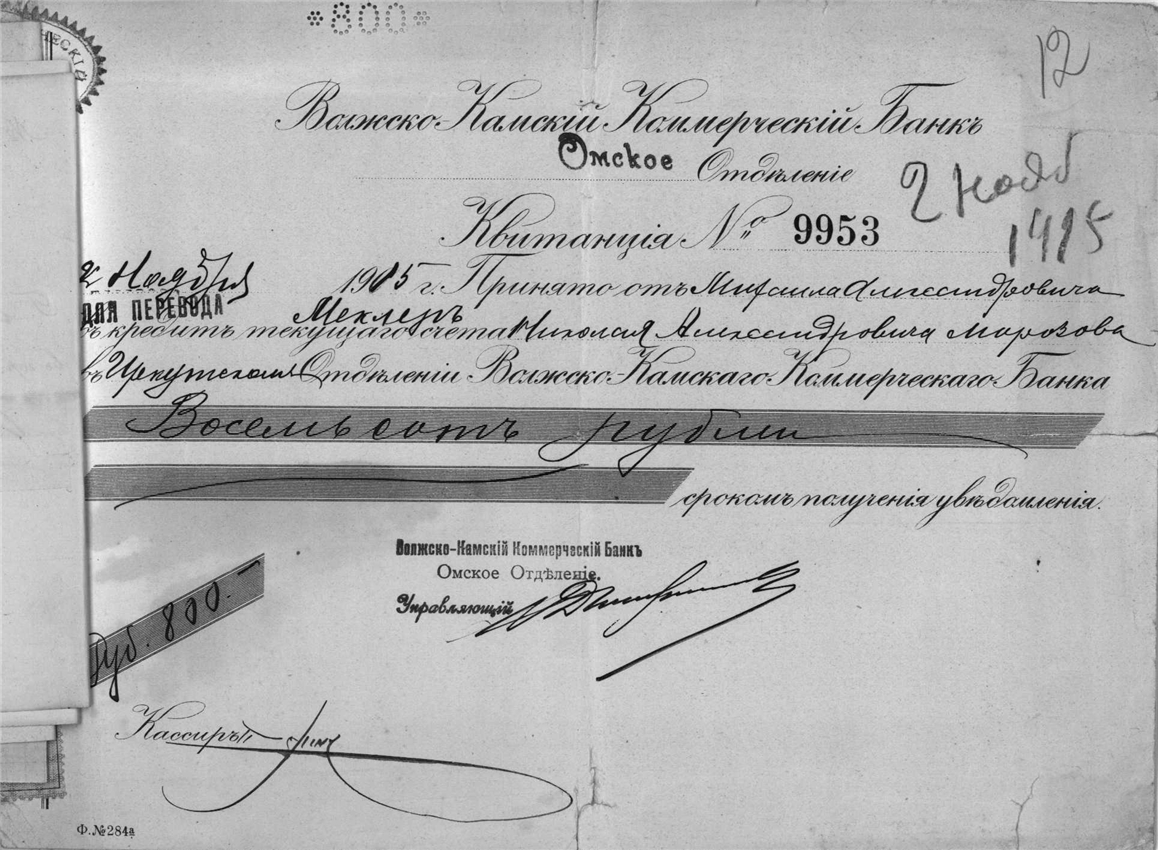 *800*
ЧЕСКІЙ
12
Волжско-Камскій Коммерческій Банкъ
Омское Отдѣленіе
2 нояб
1915
Квитанція № 9953
2 Ноября 1915 г. Принято отъ Михаила Александровича
ДЛЯ ПЕРЕВОДА Меклеръ
въ кредитъ текущаго счета Николая Александровича Морозова
въ Иркутскомъ Отдѣленіи Волжско-Камскаго Коммерческаго Банка
Восемьсотъ рубли
срокомъ полученія увѣдомленія.
Волжско-Камскій Коммерческій Банкъ
Омское Отдѣленіе.
Управляющій
Руб. 800.-
Кассиръ
Ф.№284а